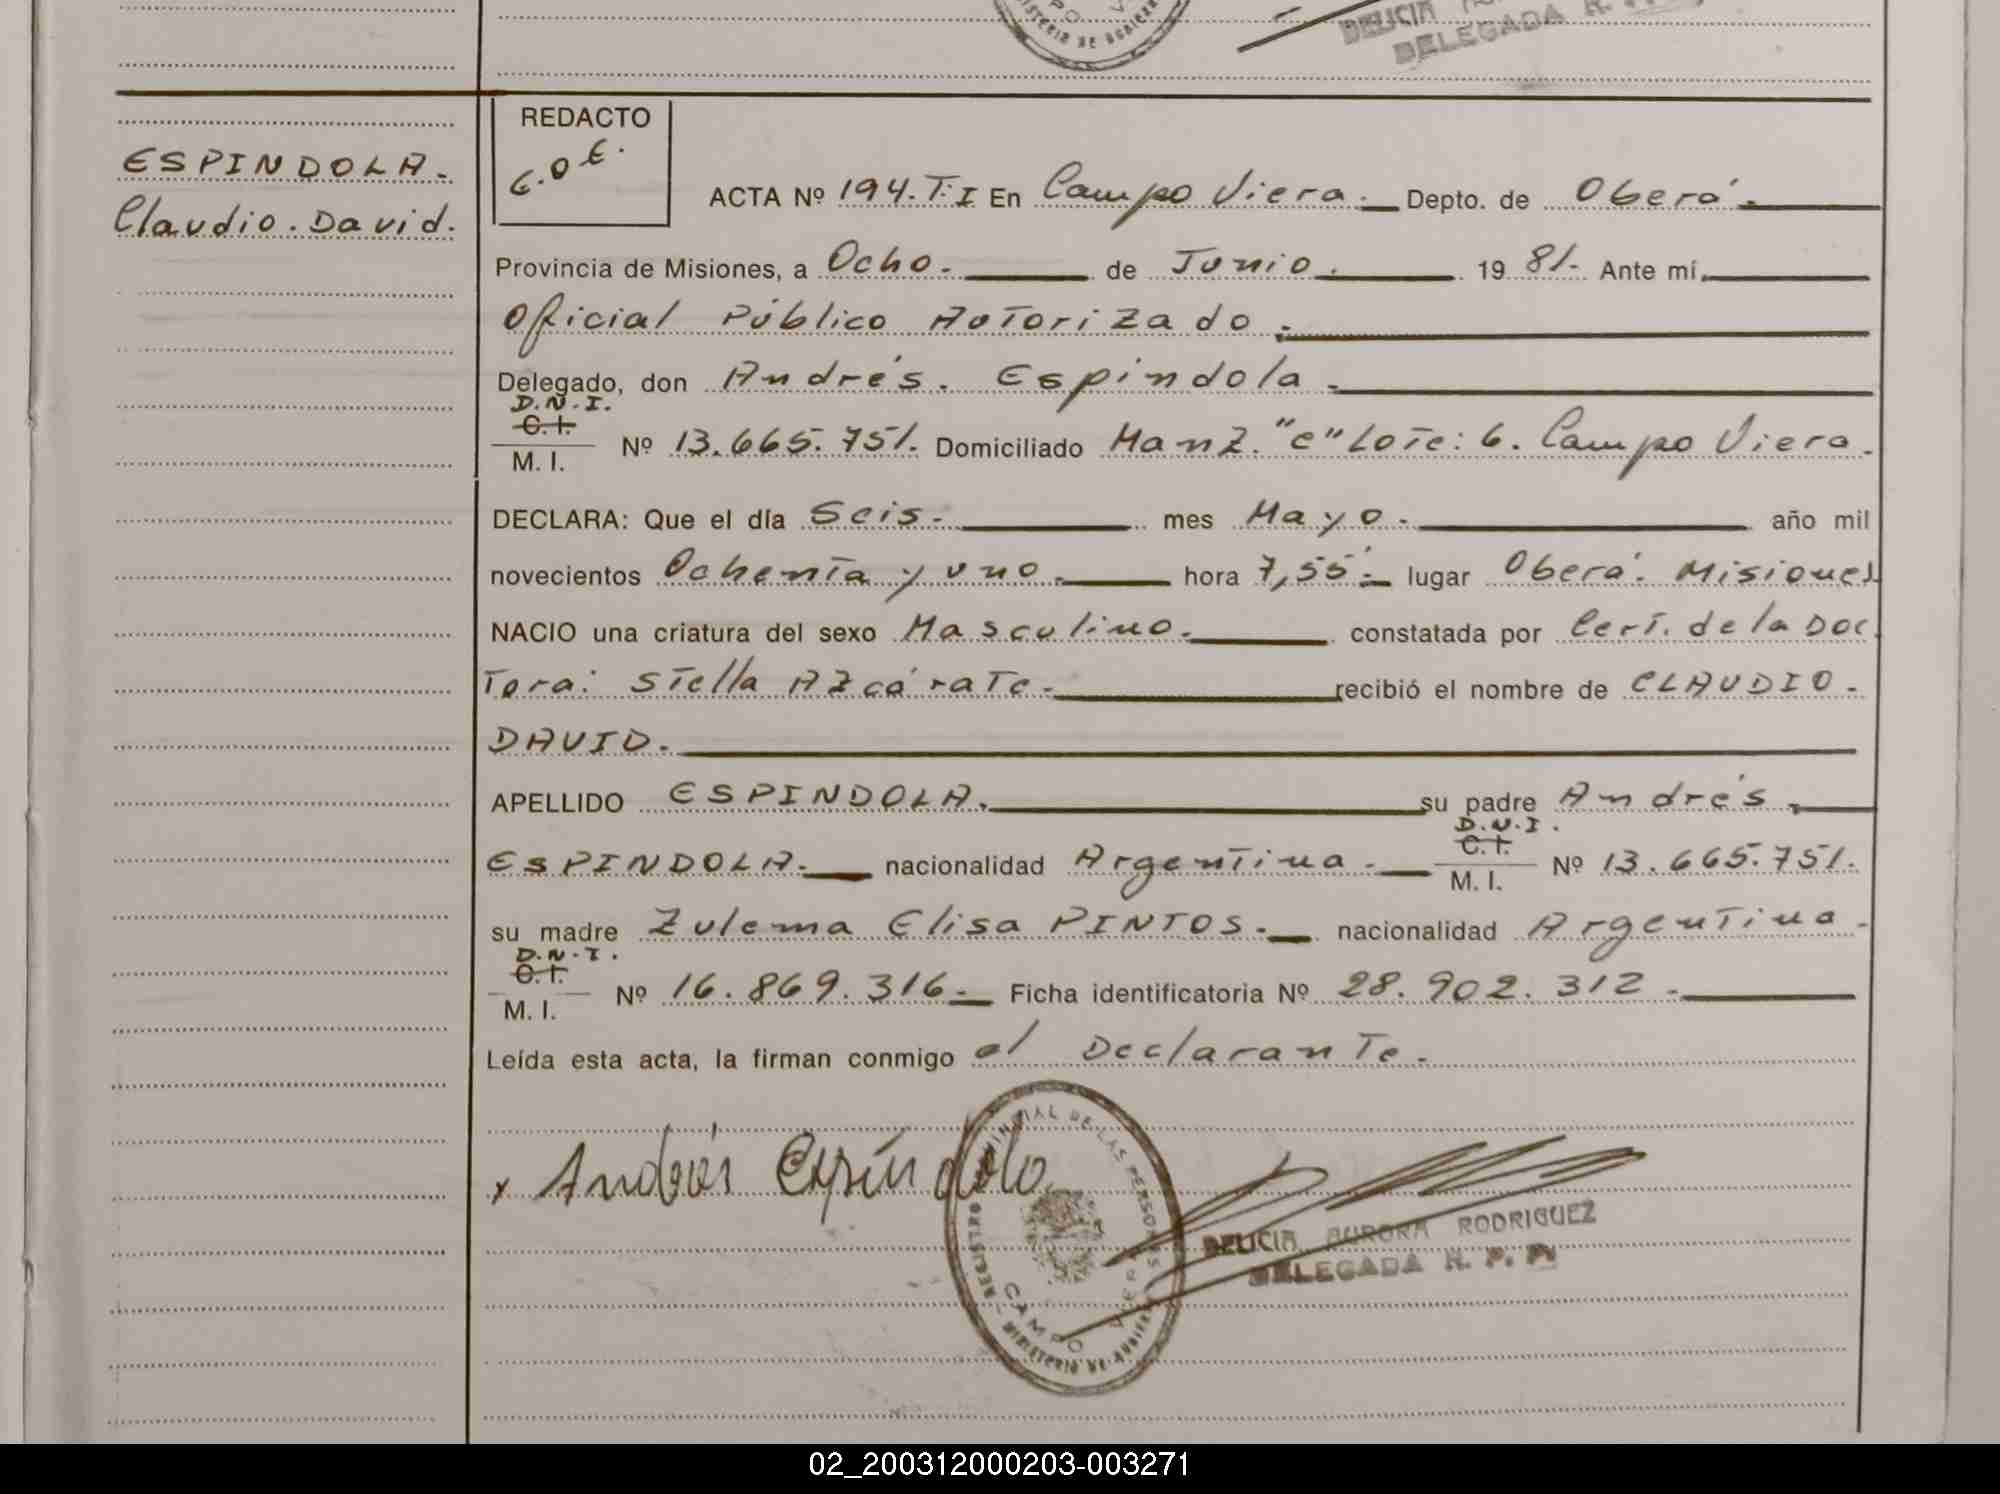 DELEGADA R.
ESPINDOLA.
Claudio. David.
REDACTO
ACTA Nº 194.T:I En Campo Viera.- Depto. de Oberá.
Provincia de Misiones, a Ocho. de Junio. 19 81. Ante mí,
Oficial Público Autorizado.
Delegado, don Andrés. Espíndola.
D.N.I.
C.I.
M. I. Nº 13.665.751. Domiciliado Manz. "C" Lote: 6. Campo Viera.
DECLARA: Que el día Seis. mes Mayo. año mil
novecientos Ochenta y uno. hora 7,55. lugar Oberá. Misiones
NACIO una criatura del sexo Masculino. constatada por Cert. de la Doc
tora: Stella Azcárate. recibió el nombre de CLAUDIO.
DAVID.
APELLIDO ESPINDOLA. su padre Andrés
D.N.I.
C.I.
ESPINDOLA. nacionalidad Argentina. M. I. Nº 13.665.751.
su madre Zulema Elisa PINTOS. nacionalidad Argentina
D.N.I.
C.I.
M. I. Nº 16.869.316. Ficha identificatoria Nº 28.902.312.
Leída esta acta, la firman conmigo el Declarante.
x Andrés Espíndola
REGISTRO PROVINCIAL DE LAS PERSONAS
CAMPO VIERA
DELICIA AURORA RODRIGUEZ
DELEGADA R. P. P.
02_200312000203-003271